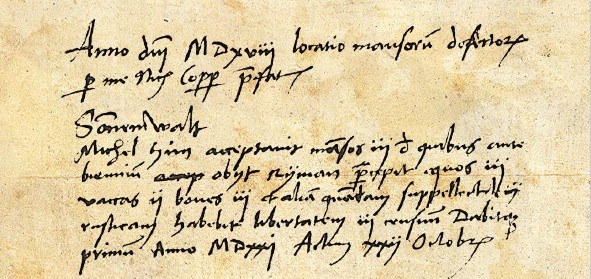 Anno dni MDxviii locatio mansorū desertoꝝ
p me Nic Copp pfat
Sonnenwalt
Michel Hun acceptavit mansos iii d quibus ante
biennium obijt Pcepit equos iii
vaccas ii boves iii et aliā quandam suppellectilē
rusticam habebit libertatem iii censuum Dabit
primum Anno MDxxi Actum xxii Octobr